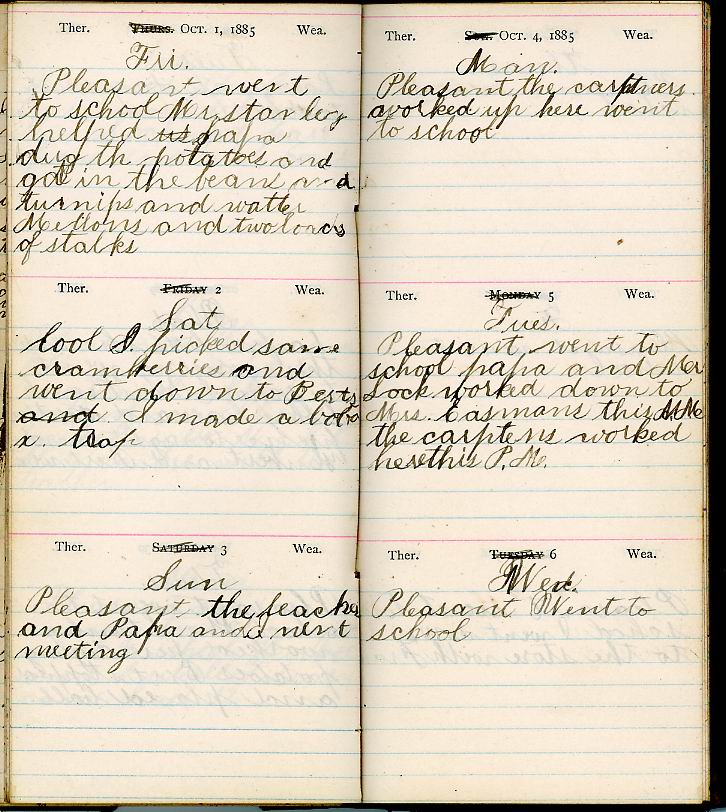 Ther. THURS. OCT. 1, 1885 Wea.
Fri.
Pleasant went
to school Mr Stanley
helped us papa
dug th potatoes and
got in the beans and
turnips and watter
Mellons and two loads
of stalks
Ther. FRIDAY 2 Wea.
Sat
Cool I picked some
cramberries and
went down to Berts
and I made a
x. trap
Ther. SATURDAY 3 Wea.
Sun
Pleasant the teacher
and Papa and I went
meeting
Ther. SUN. OCT. 4, 1885 Wea.
Mon.
Pleasant the carptners
worked up here went
to school
Ther. MONDAY 5 Wea.
Tues.
Pleasant went to
school papa and Mr
Lock worked down to
Mrs. Easmans this A.M.
the carptens worked
here this P.M.
Ther. TUESDAY 6 Wea.
Wed.
Pleasant Went to
school